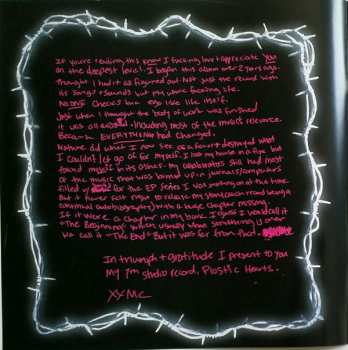 If you're reading this know I fucking love + appreciate you
on the deepest level. I began this album over 2 years ago.
Thought I had it all figured out. Not just the record with
its songs + sounds but my whole fucking life.
No one checks an ego like life itself.
Just when I thought the body of work was finished
it was all erased. Including most of the music's relevance.
Because EVERYTHING had changed.
Nature did what I now see as a favor + destroyed what
I couldn't let go of for myself. I lost my house in a fire but
found myself in its ashes. My collaborators still had most
of the music that was burned up in journals + computers
filled for the EP series I was working on at the time.
But it never felt right to release my story (each record being a
continual autobiography) with a huge chapter missing.
If it were a chapter in my book I guess I would call it
"The Beginning" which usually when something is over
we call it "The End". But it was far from that.
In triumph + gratitude I present to you
my 7th studio record, Plastic Hearts.
XX MC